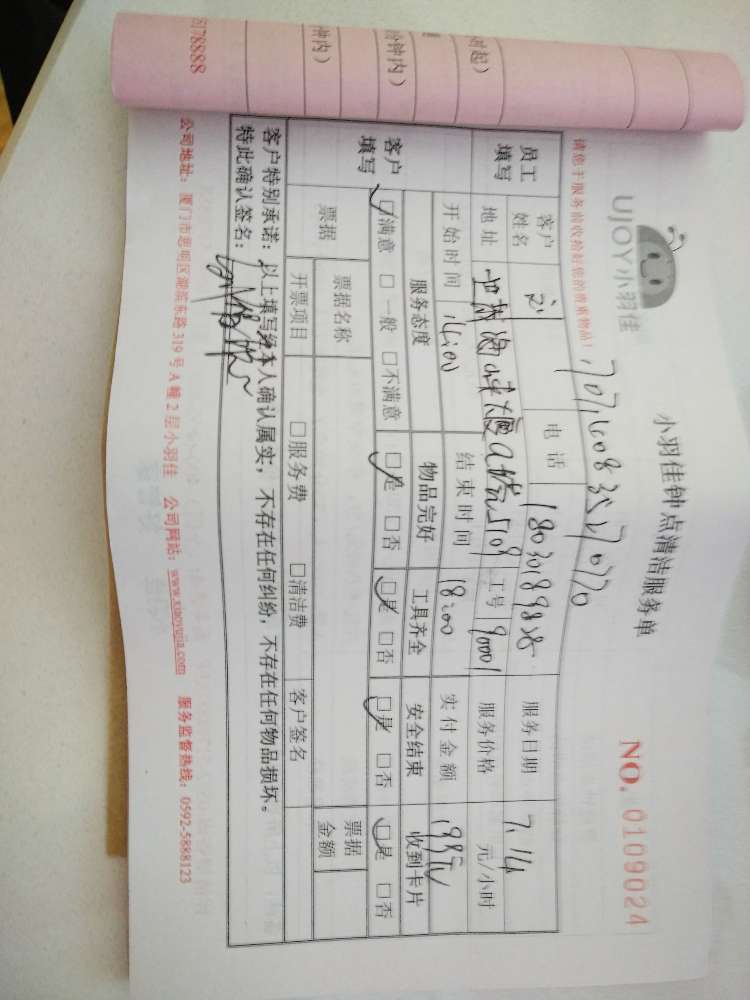 时起)
钟内)
分钟内)
钟内)
5178888
UJOY小羽佳
小羽佳钟点清洁服务单
NO. 0109024
请您于服务前收拾好您的贵重物品!
员工填写
客户姓名
电话
服务日期 7.14
地址
a 509
工号 90001
服务价格 元/小时
开始时间 14:00
结束时间 18:00
实付金额 198元
客户填写
服务态度 物品完好 工具齐全 安全结束 收到卡片
☑满意 □一般 □不满意 ☑是 □否 ☑是 □否 ☑是 □否 ☑是 □否
票据
票据名称
票据金额
开票项目 □服务费 □清洁费 客户签名
客户特别承诺:以上填写经本人确认属实,不存在任何纠纷,不存在任何物品损坏。
特此确认签名:
公司地址:厦门市思明区湖滨东路319号A幢2层小羽佳 公司网站:www.xiaoyujia.com 服务监督热线:0592-5888123